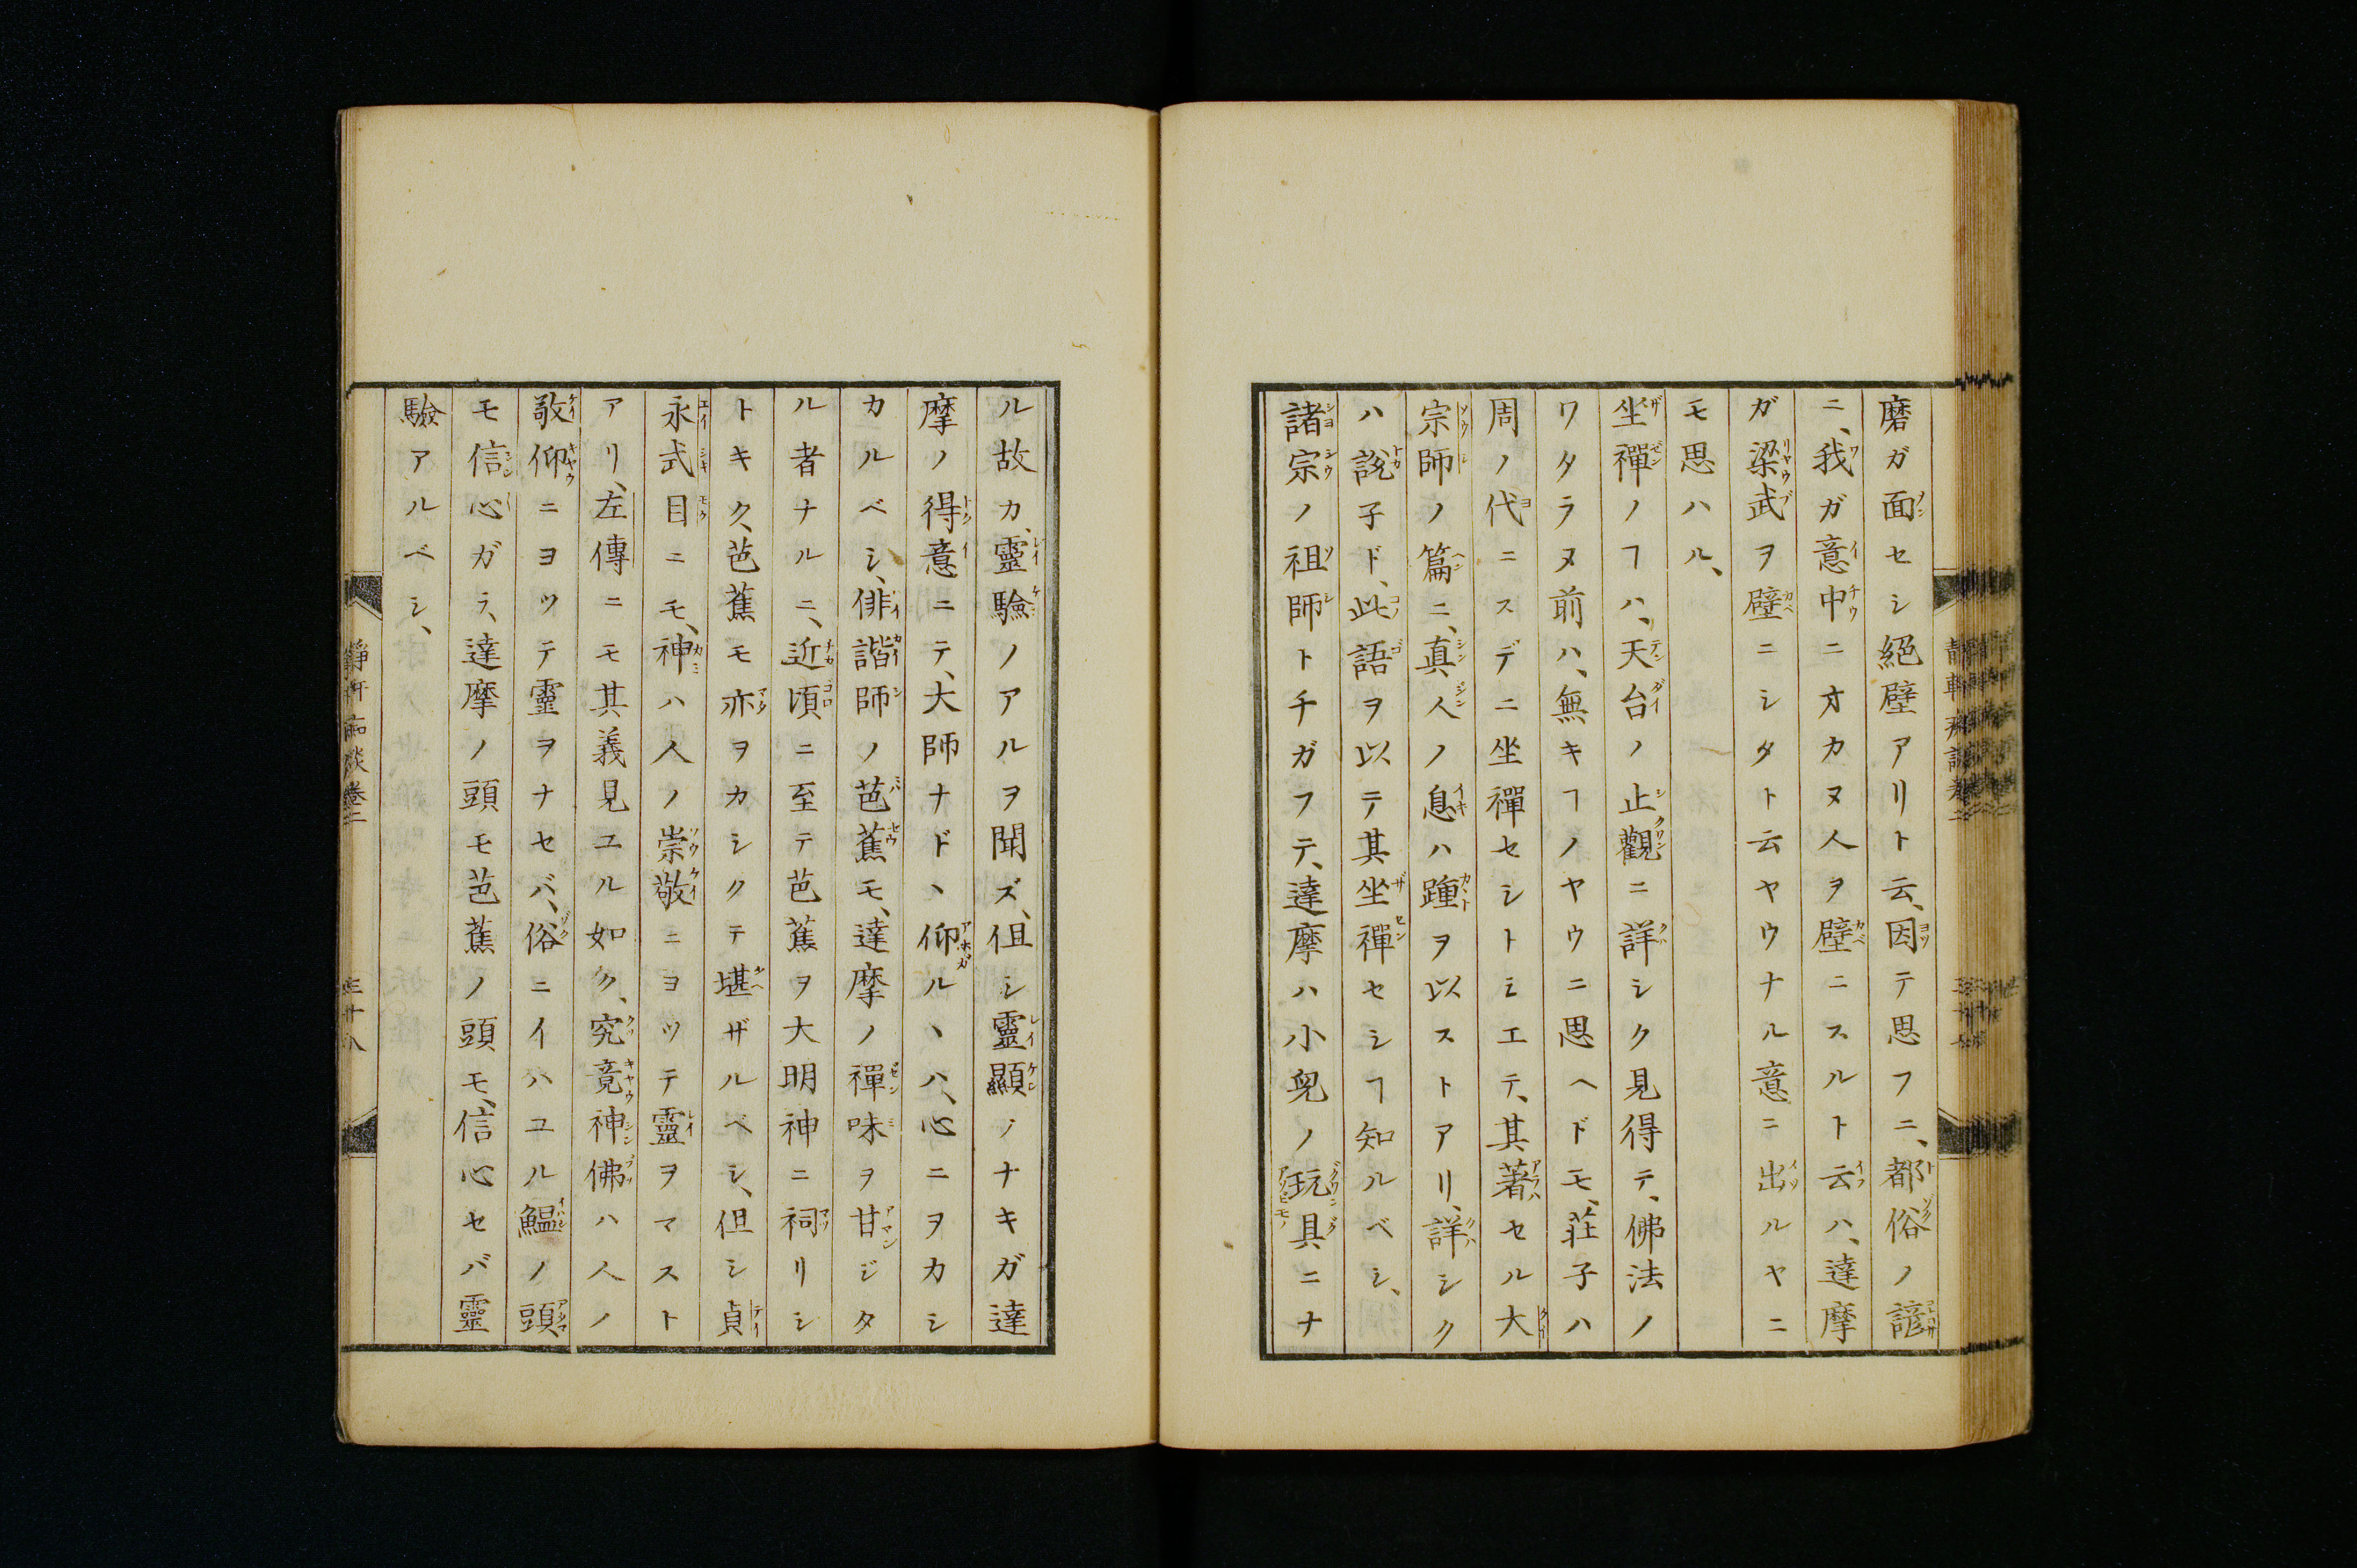 磨ガ面セシ絕壁アリト云、因テ思フニ、都俗ノ諺
ニ、我ガ意中ニオカヌ人ヲ壁ニスルト云ハ、達摩
ガ梁武ヲ壁ニシタト云ヤウナル意ニ出ルヤニ
モ思ハル、
坐禪ノヿハ、天台ノ止觀ニ詳シク見得テ、佛法ノ
ワタラヌ前ハ、無キヿノヤウニ思ヘドモ、莊子ハ
周ノ代ニスデニ坐禪セシトミエテ、其著セル大
宗師ノ篇ニ、真人ノ息ハ踵ヲ以ストアリ、詳シク
ハ說子ド、此語ヲ以テ其坐禪セシヿ知ルベシ、
諸宗ノ祖師トチガフテ、達摩ハ小兒ノ玩具ニナ
ル故カ、靈驗ノアルヲ聞ズ、但シ靈顯ノナキガ達
摩ノ得意ニテ、大師ナドヽ仰ルヽハ、心ニヲカシ
カルベシ、俳諧師ノ芭蕉モ、達摩ノ禪味ヲ甘ジタ
ル者ナルニ、近頃ニ至テ芭蕉ヲ大明神ニ祠リシ
トキク、芭蕉モ亦ヲカシクテ堪ザルベシ、但シ貞
永式目ニモ、神ハ人ノ崇敬ニヨツテ靈ヲマスト
アリ、左傳ニモ其義見ユル如ク、究竟神佛ハ人ノ
敬仰ニヨツテ靈ヲナセバ、俗ニイハユル鰮ノ頭
モ信心ガラ、達摩ノ頭モ芭蕉ノ頭モ、信心セバ靈
驗アルベシ、